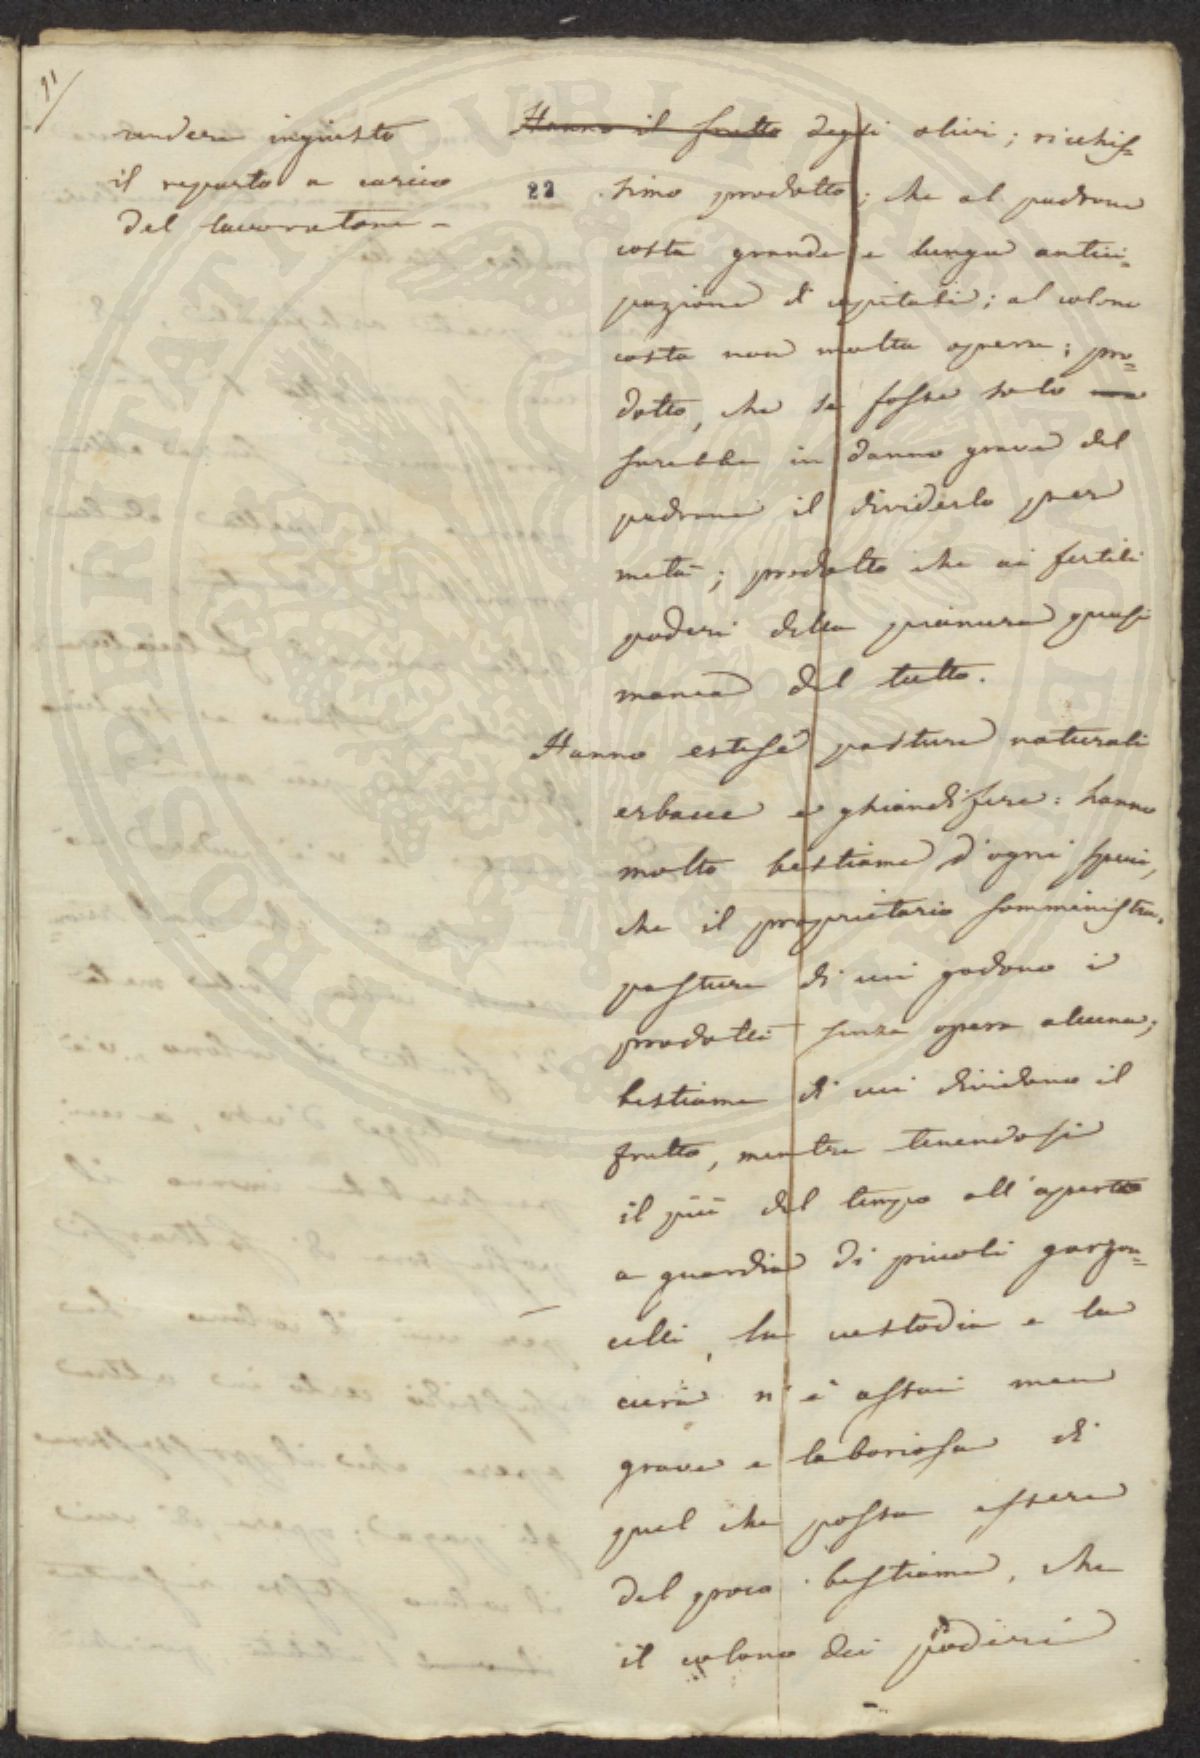 91
rendere ingiusto
il reparto a carico
del lavoratore -
Hanno il frutto degli olivi; ricchis=
22
simo prodotto; che al padrone
costa grande e lunga antici=
pazione di capitali; al colono
costa non molta opera; pro=
dotto, che se fosse solo
sarebbe in danno grave del
padrone il dividerlo per
metà; prodotto che ai fertili
poderi della pianura quasi
manca del tutto.
Hanno estese pasture naturali
erbacee e ghiandifere: hanno
molto bestiame d'ogni specie,
che il proprietario somministra.
pasture di cui godono i
prodotti senza opera alcuna;
bestiame di cui dividono il
frutto, mentre tenendosi
il più del tempo all'aperto
a guardia di piccoli garzon=
celli, la custodia e la
cura n'è assai men
grave e laboriosa di
quel che possa essere
del poco bestiame, che
il colono dei poderi
PROSPERITATI PUBLICAE AUGENDAE